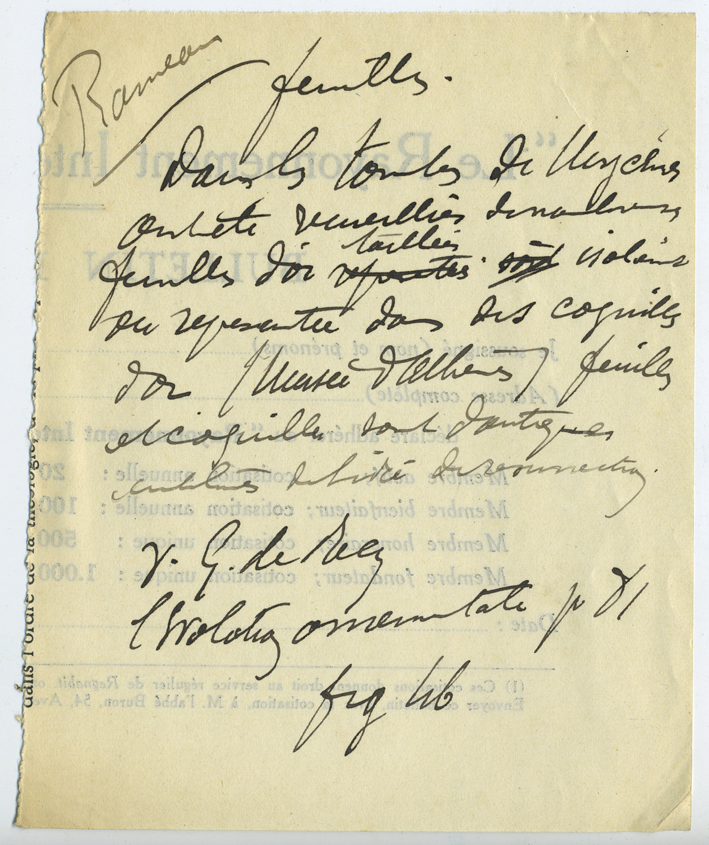 Rameau
feuilles.
Dans les tombes de Mycènes
on été recueillies de nombreuses
feuilles d'or taillées isolément
ou representée dans des coquilles
d'or (Musée d'Athènes) feuilles
et coquilles sont d'antiques
de l'idée de résurrection.
v. G. de Récy
l'Evolution ornementale p 81
fig 46
"Le Rayonnement Inte
BULLETIN
Je soussigné (nom et prénoms)
(Adresse complète)
déclare adhérer au "Rayonnement Inte
Membre cotisation annuelle : 20
Membre bienfaiteur ; cotisation annuelle : 100
Membre honoraire cotisation unique : 500
Membre fondateur ; cotisation unique : 1.000
Date :
(1) Ces cotisations donnent droit au service régulier de Regnabit.
Envoyer cotisation, à M. l'abbé Buron, 54, Ave
dans l'ordre de la théologie,